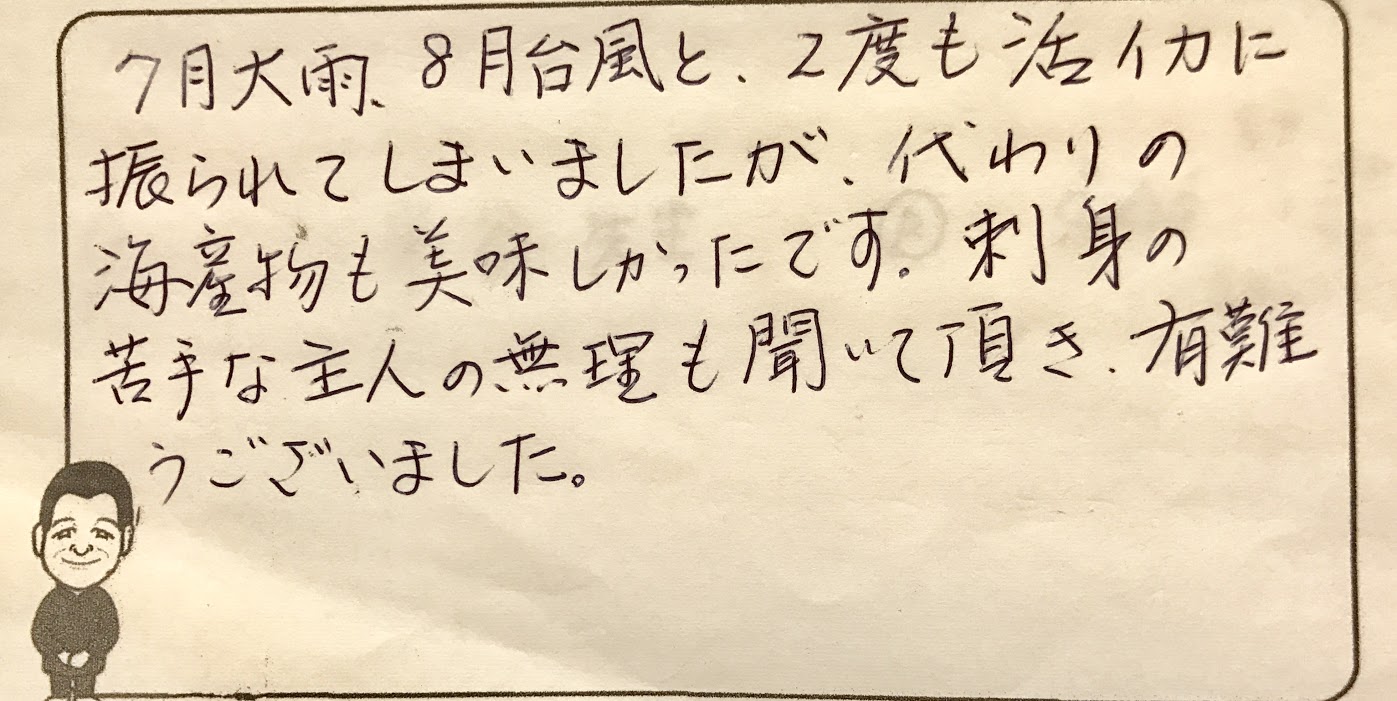 7月大雨、8月台風と、2度も活イカに
振られてしまいましたが、代わりの
海産物も美味しかったです。刺身の
苦手な主人の無理も聞いて頂き、有難
うございました。